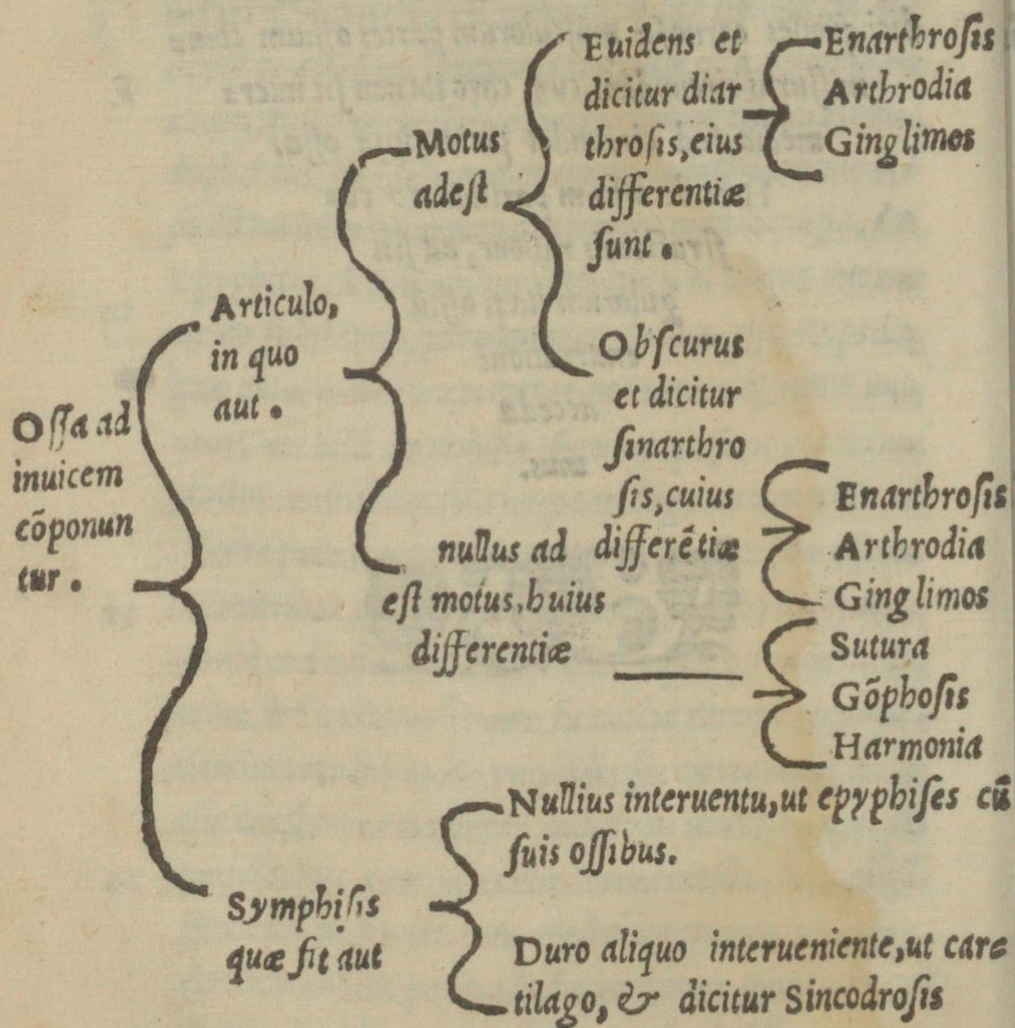 Oſſa ad
inuicem
cōponun
tur.
Articulo,
in quo
aut.
Motus
adeſt
Euidens et
dicitur diar
throſis, eius
differentiæ
ſunt.
Enarthroſis
Arthrodia
Ginglimos
Obſcurus
et dicitur
ſinarthro
ſis, cuius
differētiæ
Enarthroſis
Arthrodia
Ginglimos
nullus ad
eſt motus, huius
differentiæ
Sutura
Gōphoſis
Harmonia
Symphiſis
quæ fit aut
Nullius interuentu, ut epyphiſes cū
ſuis oſſibus.
Duro aliquo interueniente, ut car=
tilago, & dicitur Sincodroſis